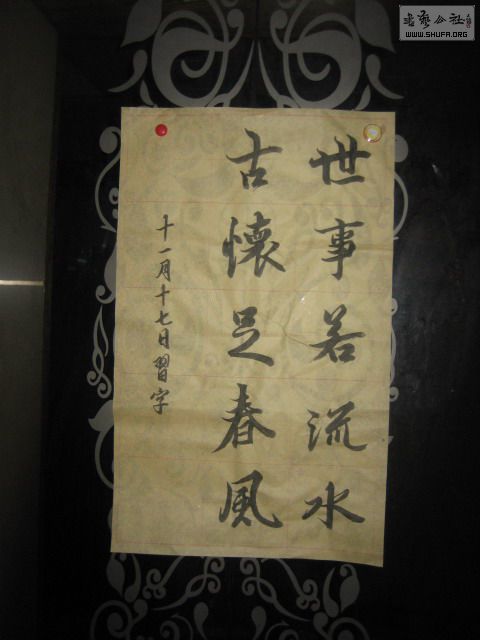 世事若流水
古懷足春風
十一月十七日習字
書藝公社
WWW.SHUFA.ORG